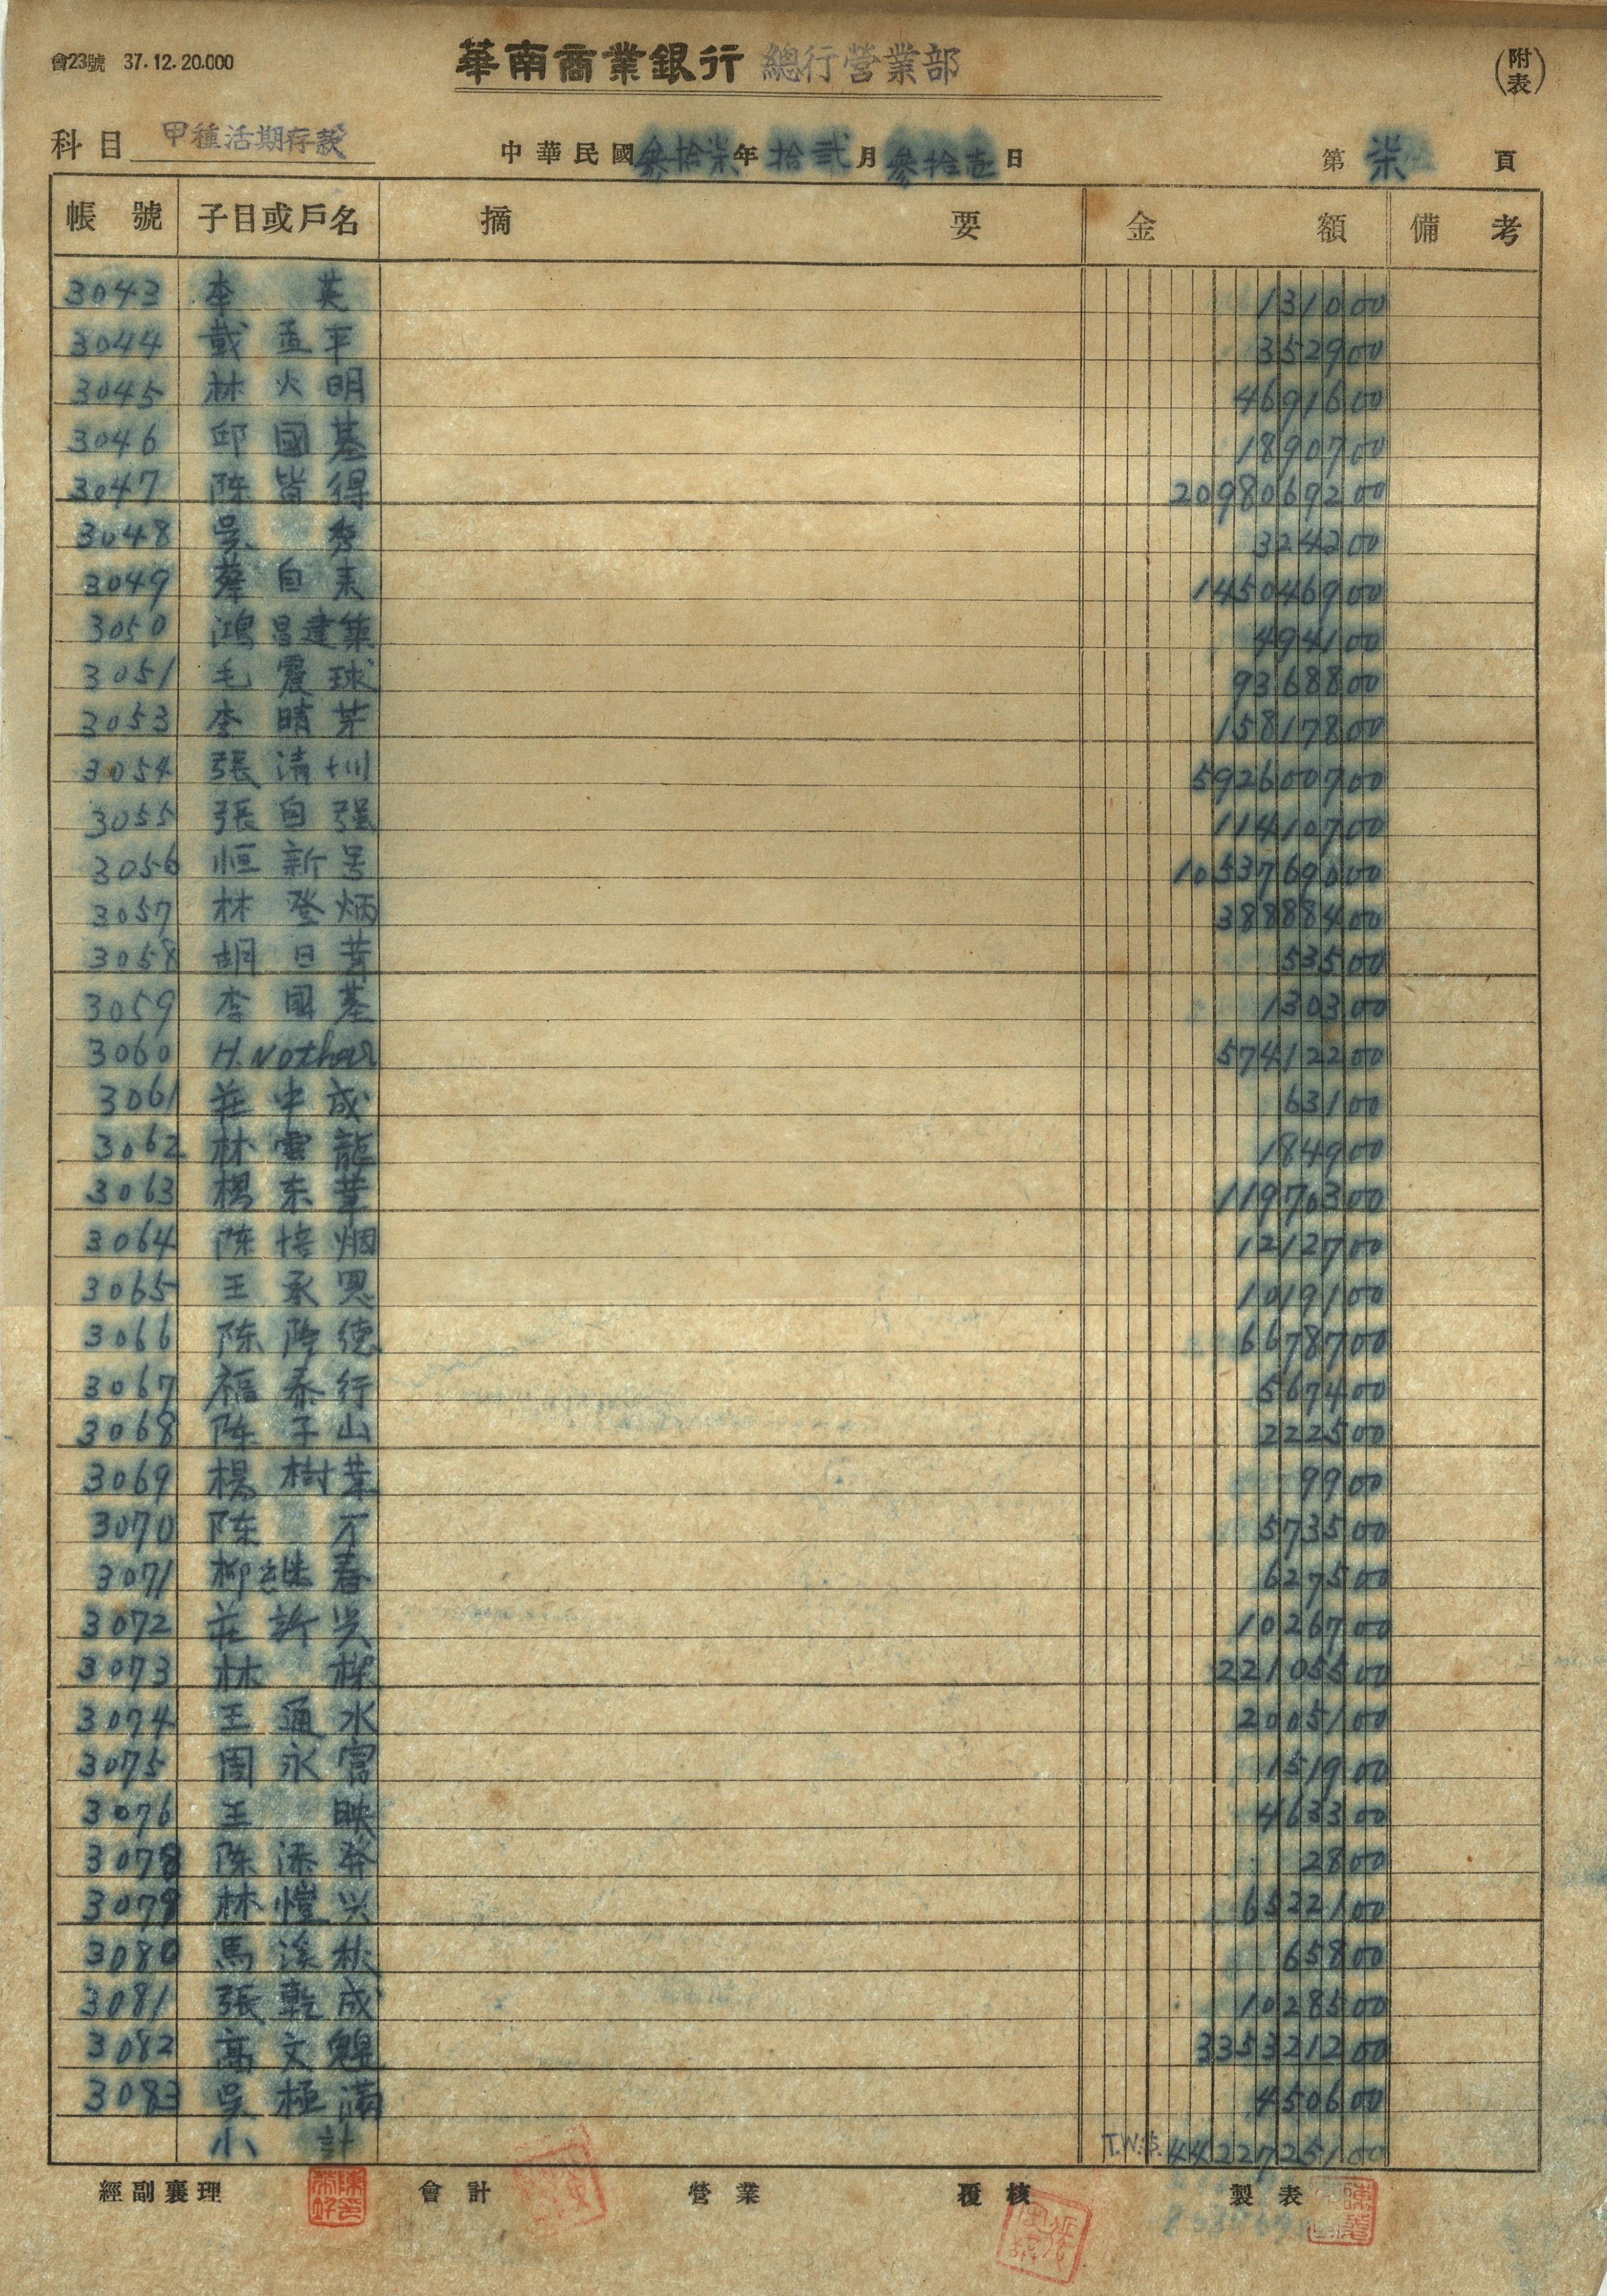 會23號 37.12.20.000
華南商業銀行 總行營業部
(附表)
科目 甲種活期存款 中華民國參拾柒年拾貳月參拾壹日 第柒頁
帳號 子目或戶名 摘要 金額 備考
3043 李英 1310.00
3044 戴孟平 3529.00
3045 林火明 46916.00
3046 邱國基 18907.00
3047 陈皆得 20980692.00
3048 吳秀 3242.00
3049 蔡自来 1450469.00
3050 鴻昌建築 4941.00
3051 毛震球 93688.00
3053 李晴芽 158178.00
3054 張清圳 5926007.00
3055 張自强 114107.00
3056 恒新号 10537690.00
3057 林登炳 388884.00
3058 胡日 535.00
3059 李國基 1303.00
3060 H. 574122.00
3061 莊中成 631.00
3062 林雲龍 1849.00
3063 楊东華 119703.00
3064 陈培烟 12127.00
3065 王承恩 10191.00
3066 陈阿德 66787.00
3067 福泰行 5674.00
3068 陈子山 2225.00
3069 楊樹葉 99.00
3070 陈才 5735.00
3071 柳继春 6275.00
3072 莊新兴 10267.00
3073 林 221055.00
3074 王通水 20051.00
3075 周永富 1519.00
3076 王映 4633.00
3078 陈添 28.00
3079 林愷兴 65221.00
3080 馬溪秋 658.00
3081 張乾成 10285.00
3082 高文 3353212.00
3083 吳極滿 4506.00
小計 T.W.$. 44227251.00
經副襄理 會計 營業 覆核 製表